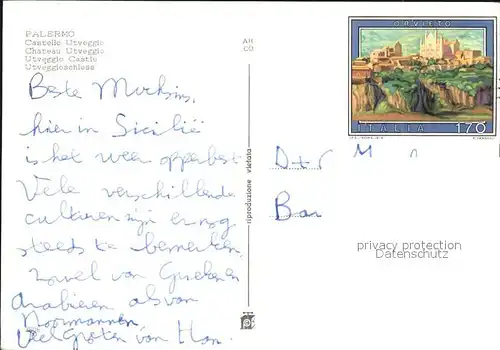 PALERMO
Castello Utveggio
Chateau Utveggio
Utveggio Castle
Utveggioschloss
AR
CO
Beste
hier in Sicilië
is het weer opperbest
Vele verschillende
culturen zijn er nog
steeds te bemerken.
zowel van Grieken
Arabieren als van
Noormannen.
Veel groeten van Han.
riproduzione vietata
ORVIETO
ITALIA 170
D+r M n
Bar
privacy protection
Datenschutz